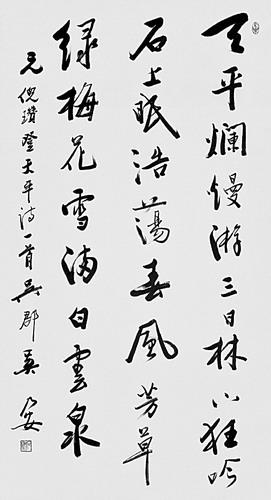 天平爛熳游三日林下狂吟
石上眠浩蕩春風芳草
緑梅花雪滿白雲泉
元倪瓚登天平詩一首吳郡